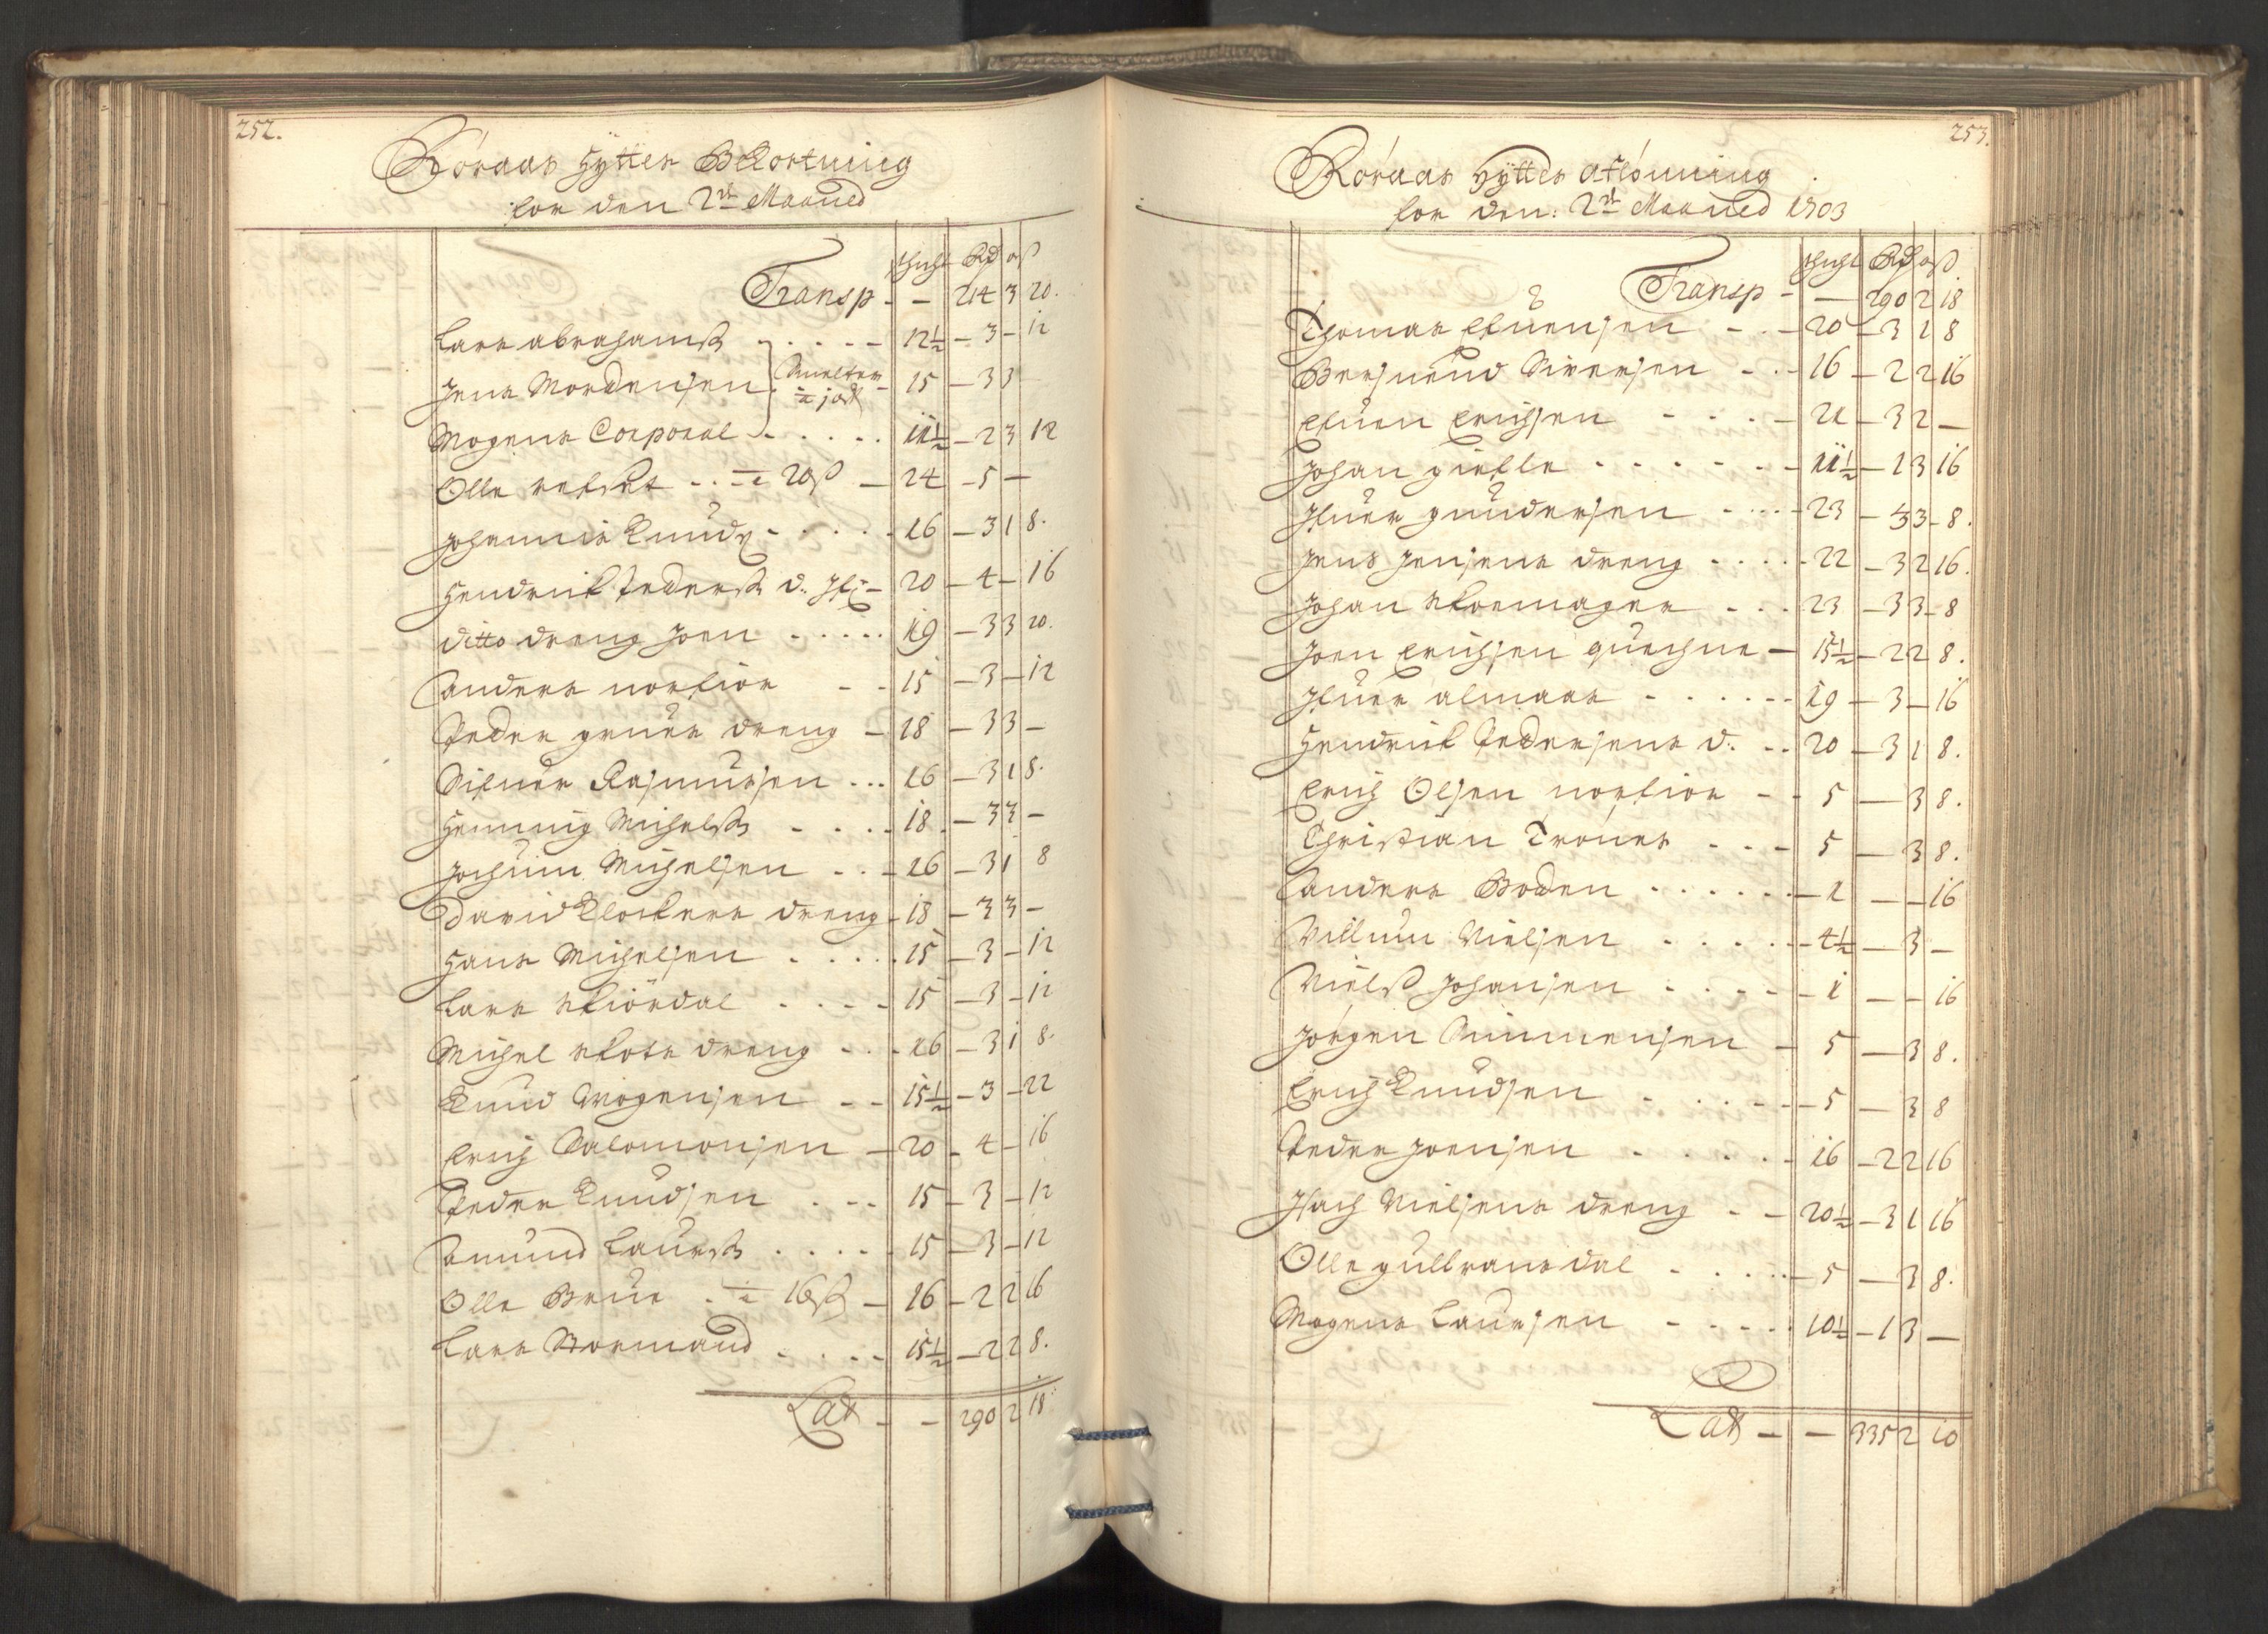 252.
Röraas Hytter Bekostning
for den 2de Maaned
schicht Rd ort ß
Transp - - 214 3 20.
Lars Abrahams: - - - - 12½ - 3 - 12
Jens Mordensen Smelter à j ort - 15 - 3 3
Mogens Corporal - - - - 11½ - 2 3 12
Olle - - à 20 ß - 24 - 5 -
Johannis Knuds - - - - 16 - 3 1 8.
Hendrik Peders: d: - 20 - 4 - 16
ditto dreng Joen - - - - 19 - 3 3 20.
Anders Norfior - - 15 - 3 - 12
Peder grues dreng - 18 - 3 3 -
Sifuer Rasmusen - - - 16 - 3 1 8.
Henning Michels: - - - - 18 - 3 3 -
Jochum Michelsen - - - 16 - 3 1 8
David Klockers dreng - 18 - 3 3 -
Hans Michelsen - - - - 15 - 3 - 12
Lars Stiördal - - - - 15 - 3 - 12
Michel Skots dreng - - - 16 - 3 1 8.
Knud Mogensen - - 15½ - 3 - 22
Erich Salomonsen - 20 - 4 - 16
Peder Knudsen - - - 15 - 3 - 12
Amund Laurs: - - - - 15 - 3 - 12
Olle Brue - à 16 ß - 16 - 2 2 16
Lars Normand - - - - 15½ - 2 2 8.
Lat - - 290 2 18
253.
Röraas Hytter Aflönning
for den: 2de Maaned 1703
schicht Rd ort ß
Transp - - 290 2 18
Thomas Efuensen - - - 20 - 3 1 8
Bersuend Siversen - - - 16 - 2 2 16
Efuen Erichsen - - - - 21 - 3 2 -
Johan giefle - - - - - - 11½ - 1 3 16
Ifuer gundersen - - - - 23 - 3 3 - 8.
Jens Jensens dreng - - - - 22 - 3 2 16.
Johan Skomager - - - 23 - 3 3 - 8
Joen Erichsen quechne - 15½ - 2 2 8.
Ifuer almaas - - - - - - 19 - 3 - 16
Hendrik Pedersens d: - - 20 - 3 1 8.
Erich Olsen Norfior - - 5 - 3 8.
Christian Trönes - - - 5 - 3 8.
Anders Boden - - - - - - 1 - - 16
Villum Nielsen - - - - - 4½ - 3 -
Nielß Johansen - - - - - 1 - - 16
Jörgen Simmensen - 5 - 3 8.
Erich Knudsen - - - - - 5 - 3 8
Peder Joensen - - - - - 16 - 2 2 16
Isach Nielsens dreng - - 20½ - 3 1 16
Olle gulbransdal - - - - 5 - 3 8.
Mogens Laursen - - - - - 10½ - 1 3 -
Lat - - 335 2 10